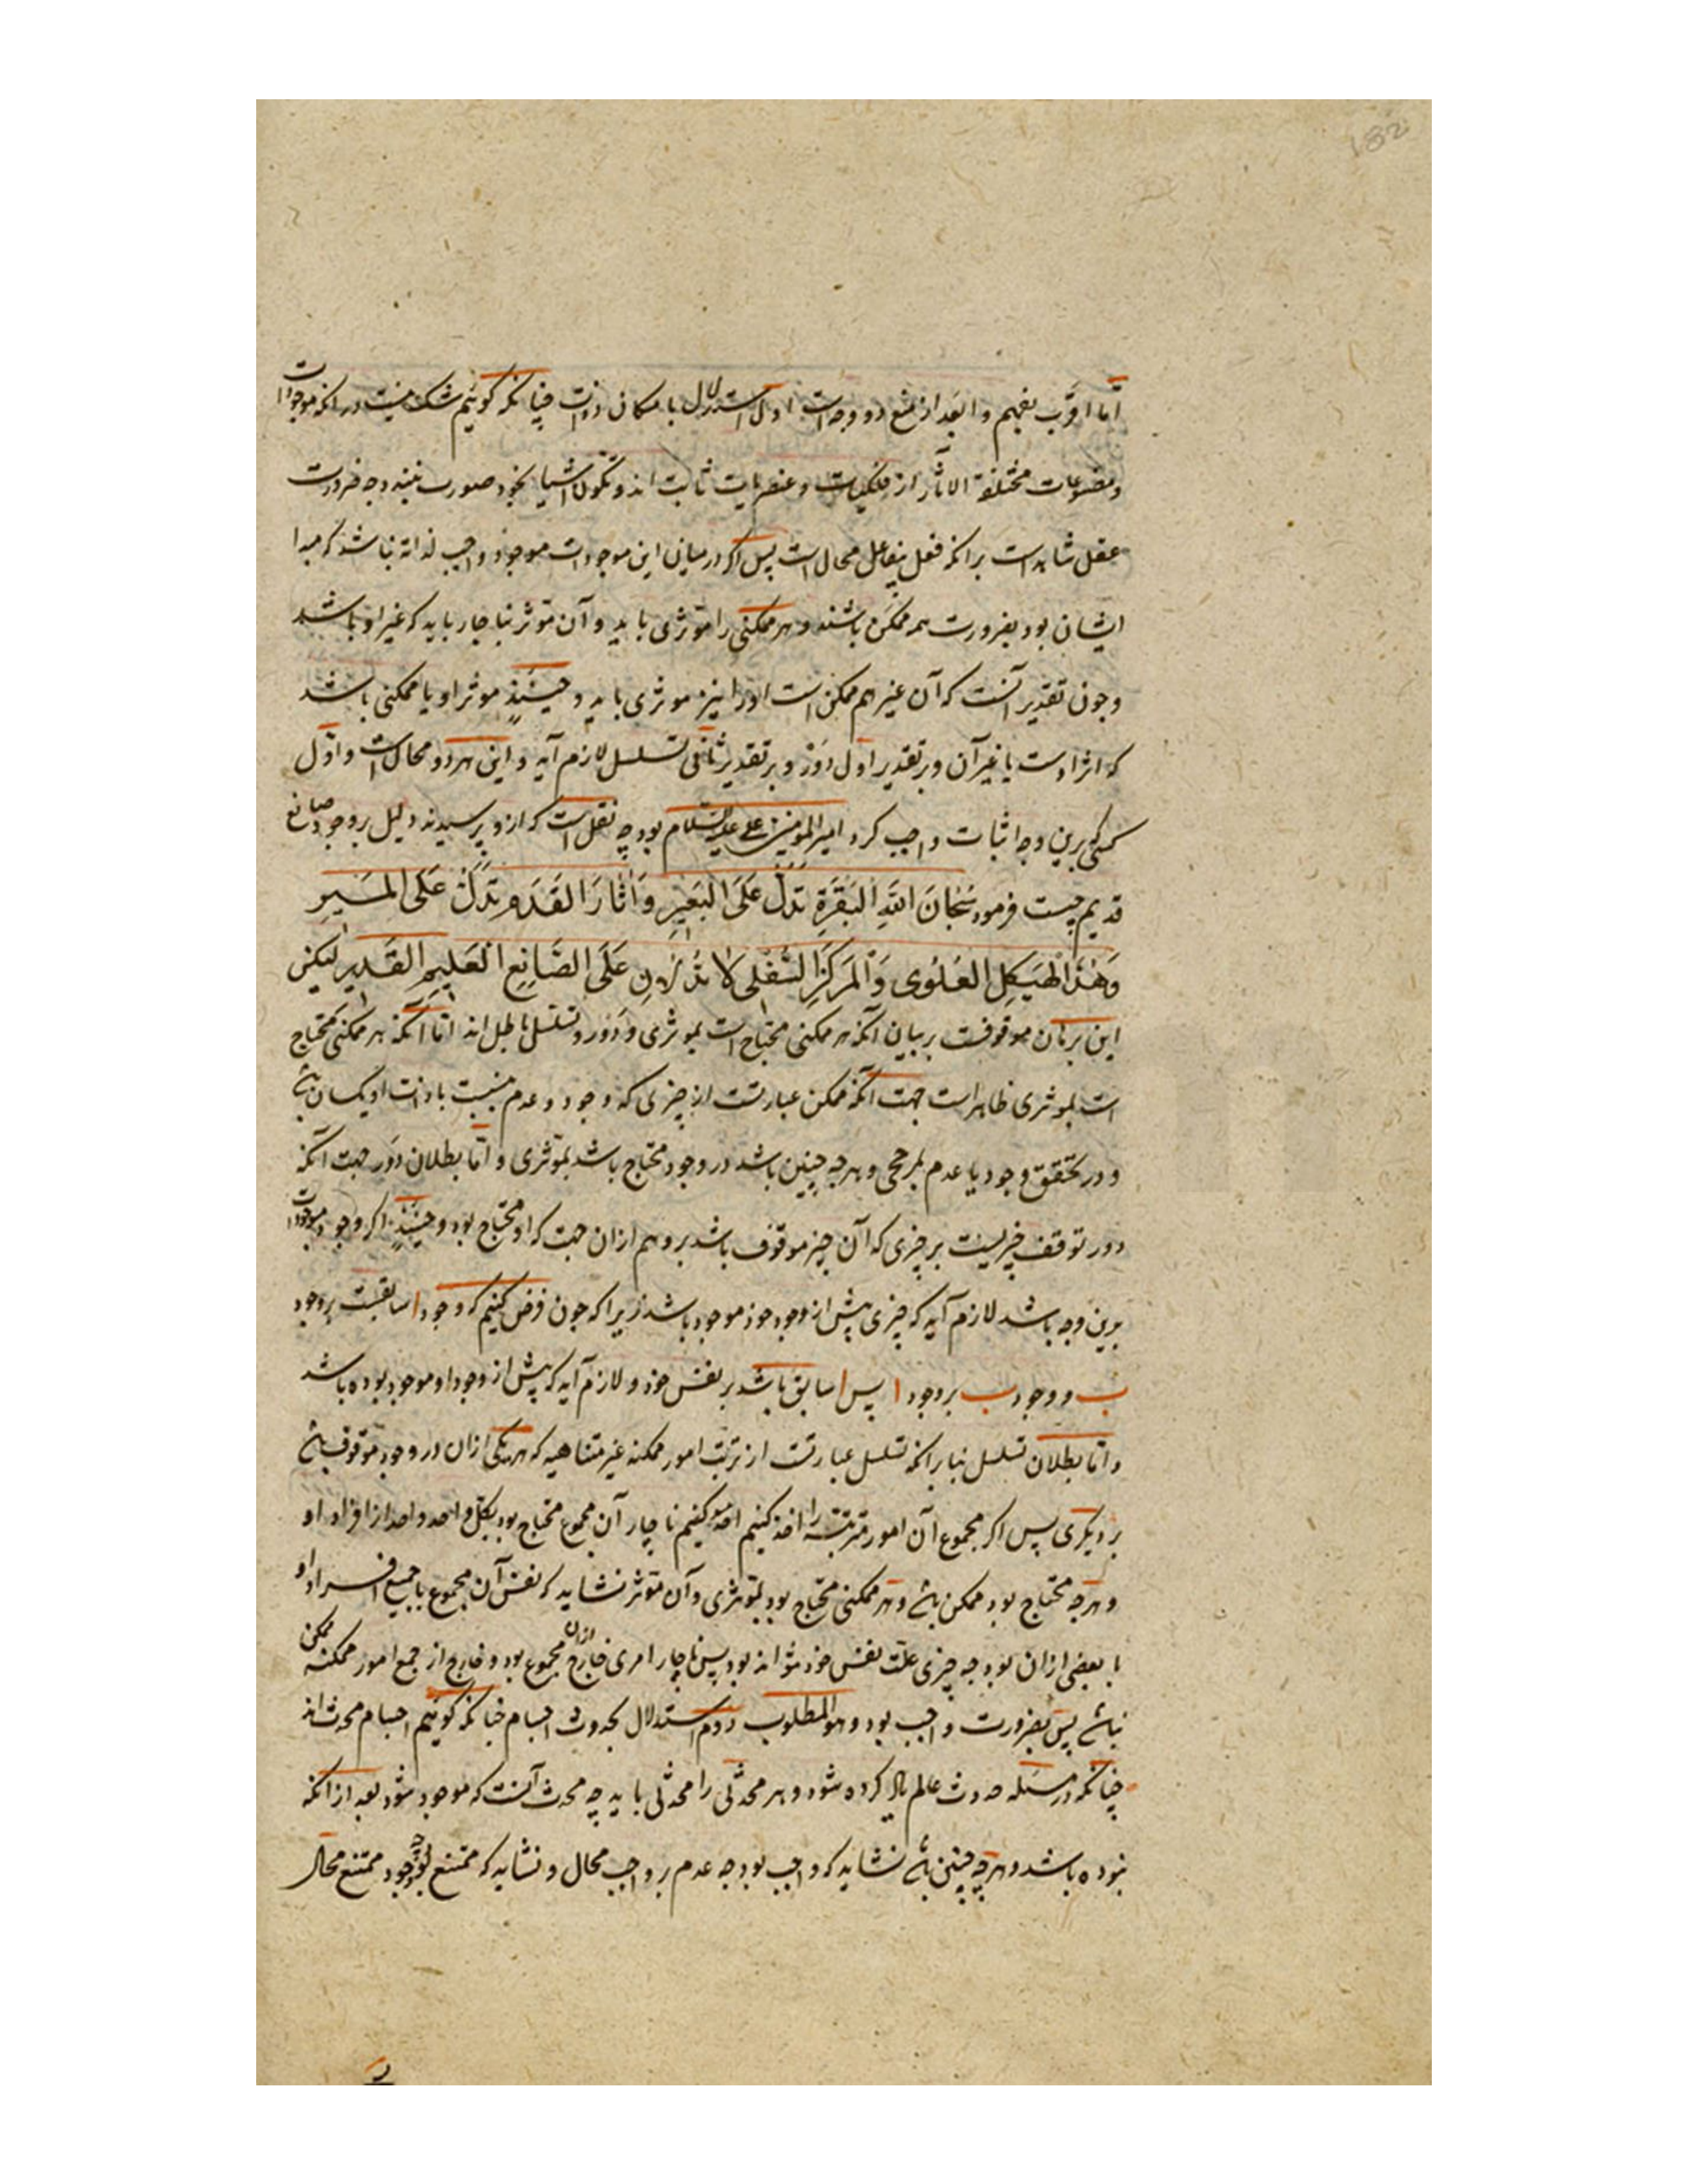 182
اما اقرب بفهم و ابعد از منع دو وجه است اول استدلال بامکان ذوات چنانکه گوئیم شک نیست در آنکه موجودات
و مصنوعات مختلفة الآثار از فلکیات و عنصریات ثابت اند و تکون اشیا بخود صورت نبندد چه ضرورت
عقل شاهد است بر آنکه فعل بیفاعل محال است پس اگر در میان این موجودات موجود واجب لذاته نباشد که مبدا
ایشان بود بضرورت همه ممکن باشند و هر ممکنی را مؤثری باید و آن مؤثر بناچار باید که غیر او باشد
و چون تقدیر آنست که آن غیر هم ممکن است او را نیز مؤثری باید و حینئذٍ مؤثر او یا ممکنی باشد
که اثر اوست یا غیر آن و بر تقدیر اول دَوْر و بر تقدیر ثانی تسلسل لازم آید و این هر دو محالست و اول
کسی که برین وجه اثبات واجب کرد امیر المؤمنین علی علیه السلام بود چه نقل است که ازو پرسیدند دلیل بر وجود صانع
قدیم چیست فرمود سُبْحَانَ اللَّهِ الْبَقَرَةِ تَدُلُّ عَلَى الْبَعِيْرِ وَآثَارَ الْقَدَمِ تَدُلُّ عَلَى الْمَسِيرِ
وَهٰذَا الْهَيْكِلِ الْعُلْوِى وَالْمَرْكَزِ السُّفْلِى لَا تَدُلَّانِ عَلَى الصَّانِعِ الْعَلِيمِ الْقَدِيرِ لیکن
این برهان موقوفست بر بیان آنکه هر ممکنی محتاج است بمؤثری و دَوْر و تسلسل باطل اند اما آنکه هر ممکنی محتاج
است بمؤثری ظاهر است جهت آنکه ممکن عبارتست از چیزی که وجود و عدم بنسبت با ذات او یکسان باشد
و در تحقق وجود یا عدم بمرجحی و هر چه چنین باشد در وجود محتاج باشد بمؤثری و اما بطلان دَوْر جهت آنکه
دور توقف چیزیست بر چیزی که آن چیز موقوف باشد برو هم از آن جهت که او محتاج بود و حینئذٍ اگر وجود موجودات
برین وجه باشد لازم آید که چیزی پیش از وجود خود موجود باشد زیرا که چون فرض کنیم که وجود ا سابقست بر وجود
ب و وجود ب بر وجود ا پس ا سابق باشد بر نفس خود و لازم آید که پیش از وجود او موجود بوده باشد
و اما بطلان تسلسل بنابر آنکه تسلسل عبارتست از ترتب امور ممکنه غیر متناهیه که هر یکی از آن در وجود موقوف باشد
بر دیگری پس اگر مجموع آن امور مترتبه را اخذ کنیم ناچار آن مجموع محتاج بود بکل واحد واحد از افراد او
و هر چه محتاج بود ممکن باشد و هر ممکنی محتاج بود بمؤثری و آن مؤثر نشاید که نفس آن مجموع یا جمیع افراد او
یا بعضی از آن بود چه چیزی علت نفس خود نتواند بود پس ناچار امری خارج از آن مجموع بود و خارج از جمیع امور ممکنه ممکن
نباشد پس بضرورت واجب بود و هو المطلوب دوم استدلال بحدوث اجسام چنانکه گوئیم اجسام محدث اند
چنانکه در مسئله حدوث عالم یاد کرده شود و هر محدثی را محدثی باید چه محدث آنست که موجود شود بعد از آنکه
نبوده باشد و هر چه چنین باشد نشاید که واجب بود چه عدم بر واجب محال و نشاید که ممتنع بود چه وجود ممتنع محال